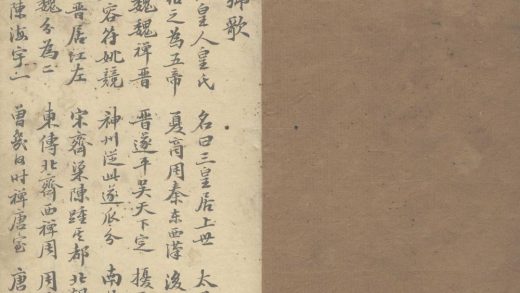 歌
皇人皇氏 名曰三皇居上世 太
之為五帝 夏商周秦东西漢 後
魏魏禪晋 晋遂平吴天下定 擾
容符姚競 神州従此遂瓜分 南
晋居江左 宋齊梁陳踵其都 北
魏分為二 東傳北齊西禪周 周
陳海宇一 曾幾何时禪唐室 唐